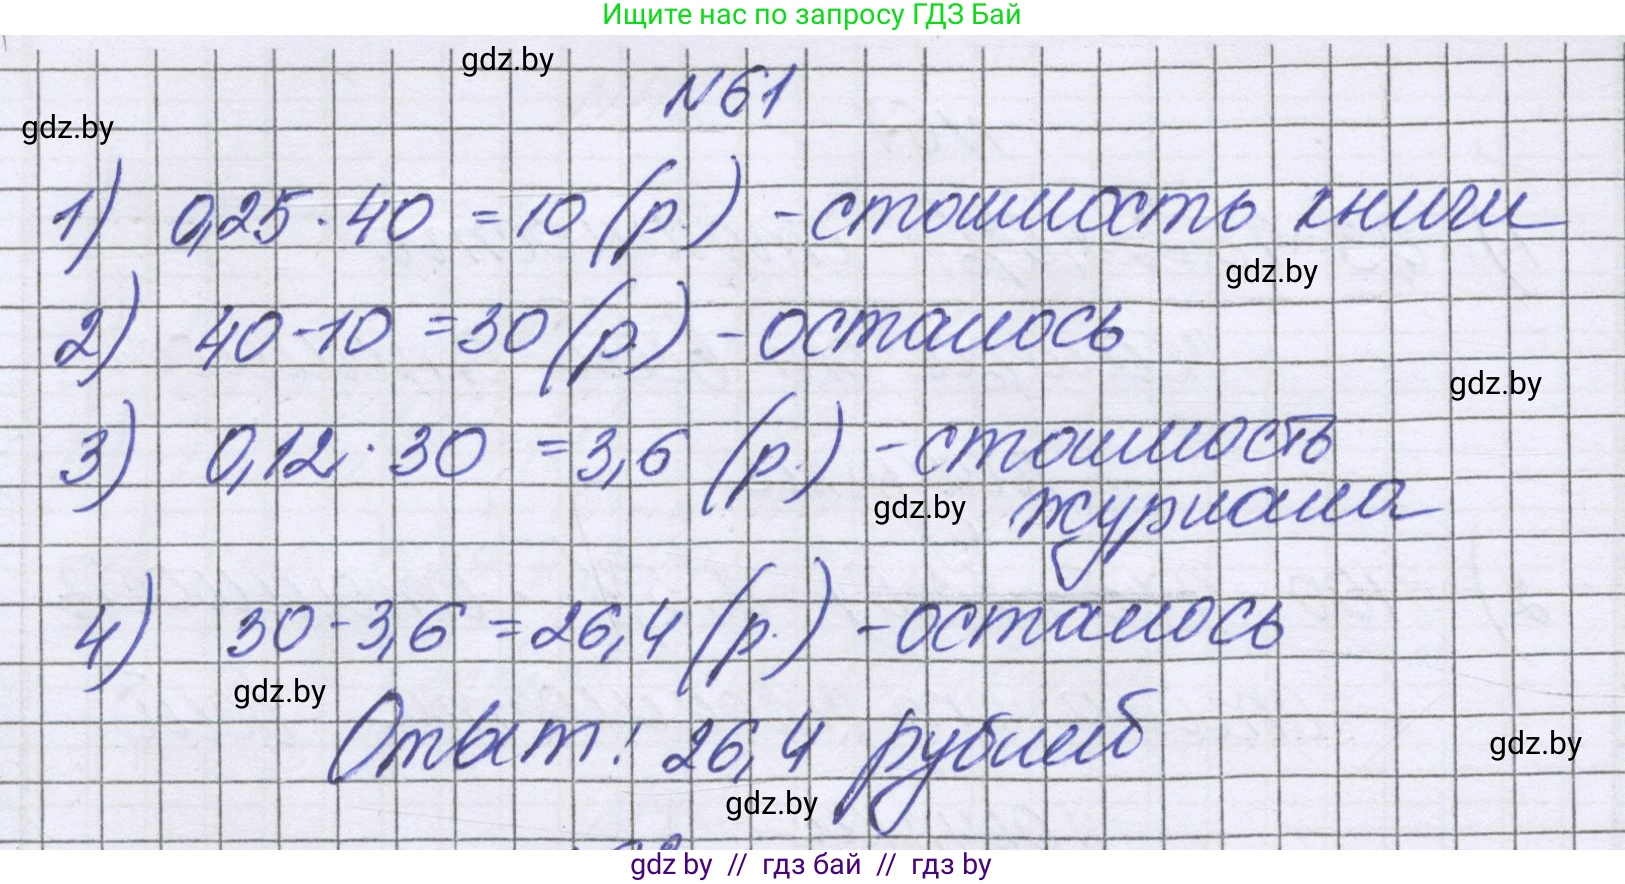 Ищите нас по запросу ГДЗ Бай
gdz.by
№61
gdz.by
1) 0,25 · 40 = 10 (р.) - стоимость книги
gdz.by
2) 40 - 10 = 30 (р.) - осталось
gdz.by
3) 0,12 · 30 = 3,6 (р.) - стоимость
gdz.by журнала
4) 30 - 3,6 = 26,4 (р.) - осталось
gdz.by
Ответ: 26,4 рублей
gdz.by
gdz.by
gdz by // гдз бай // гдз by